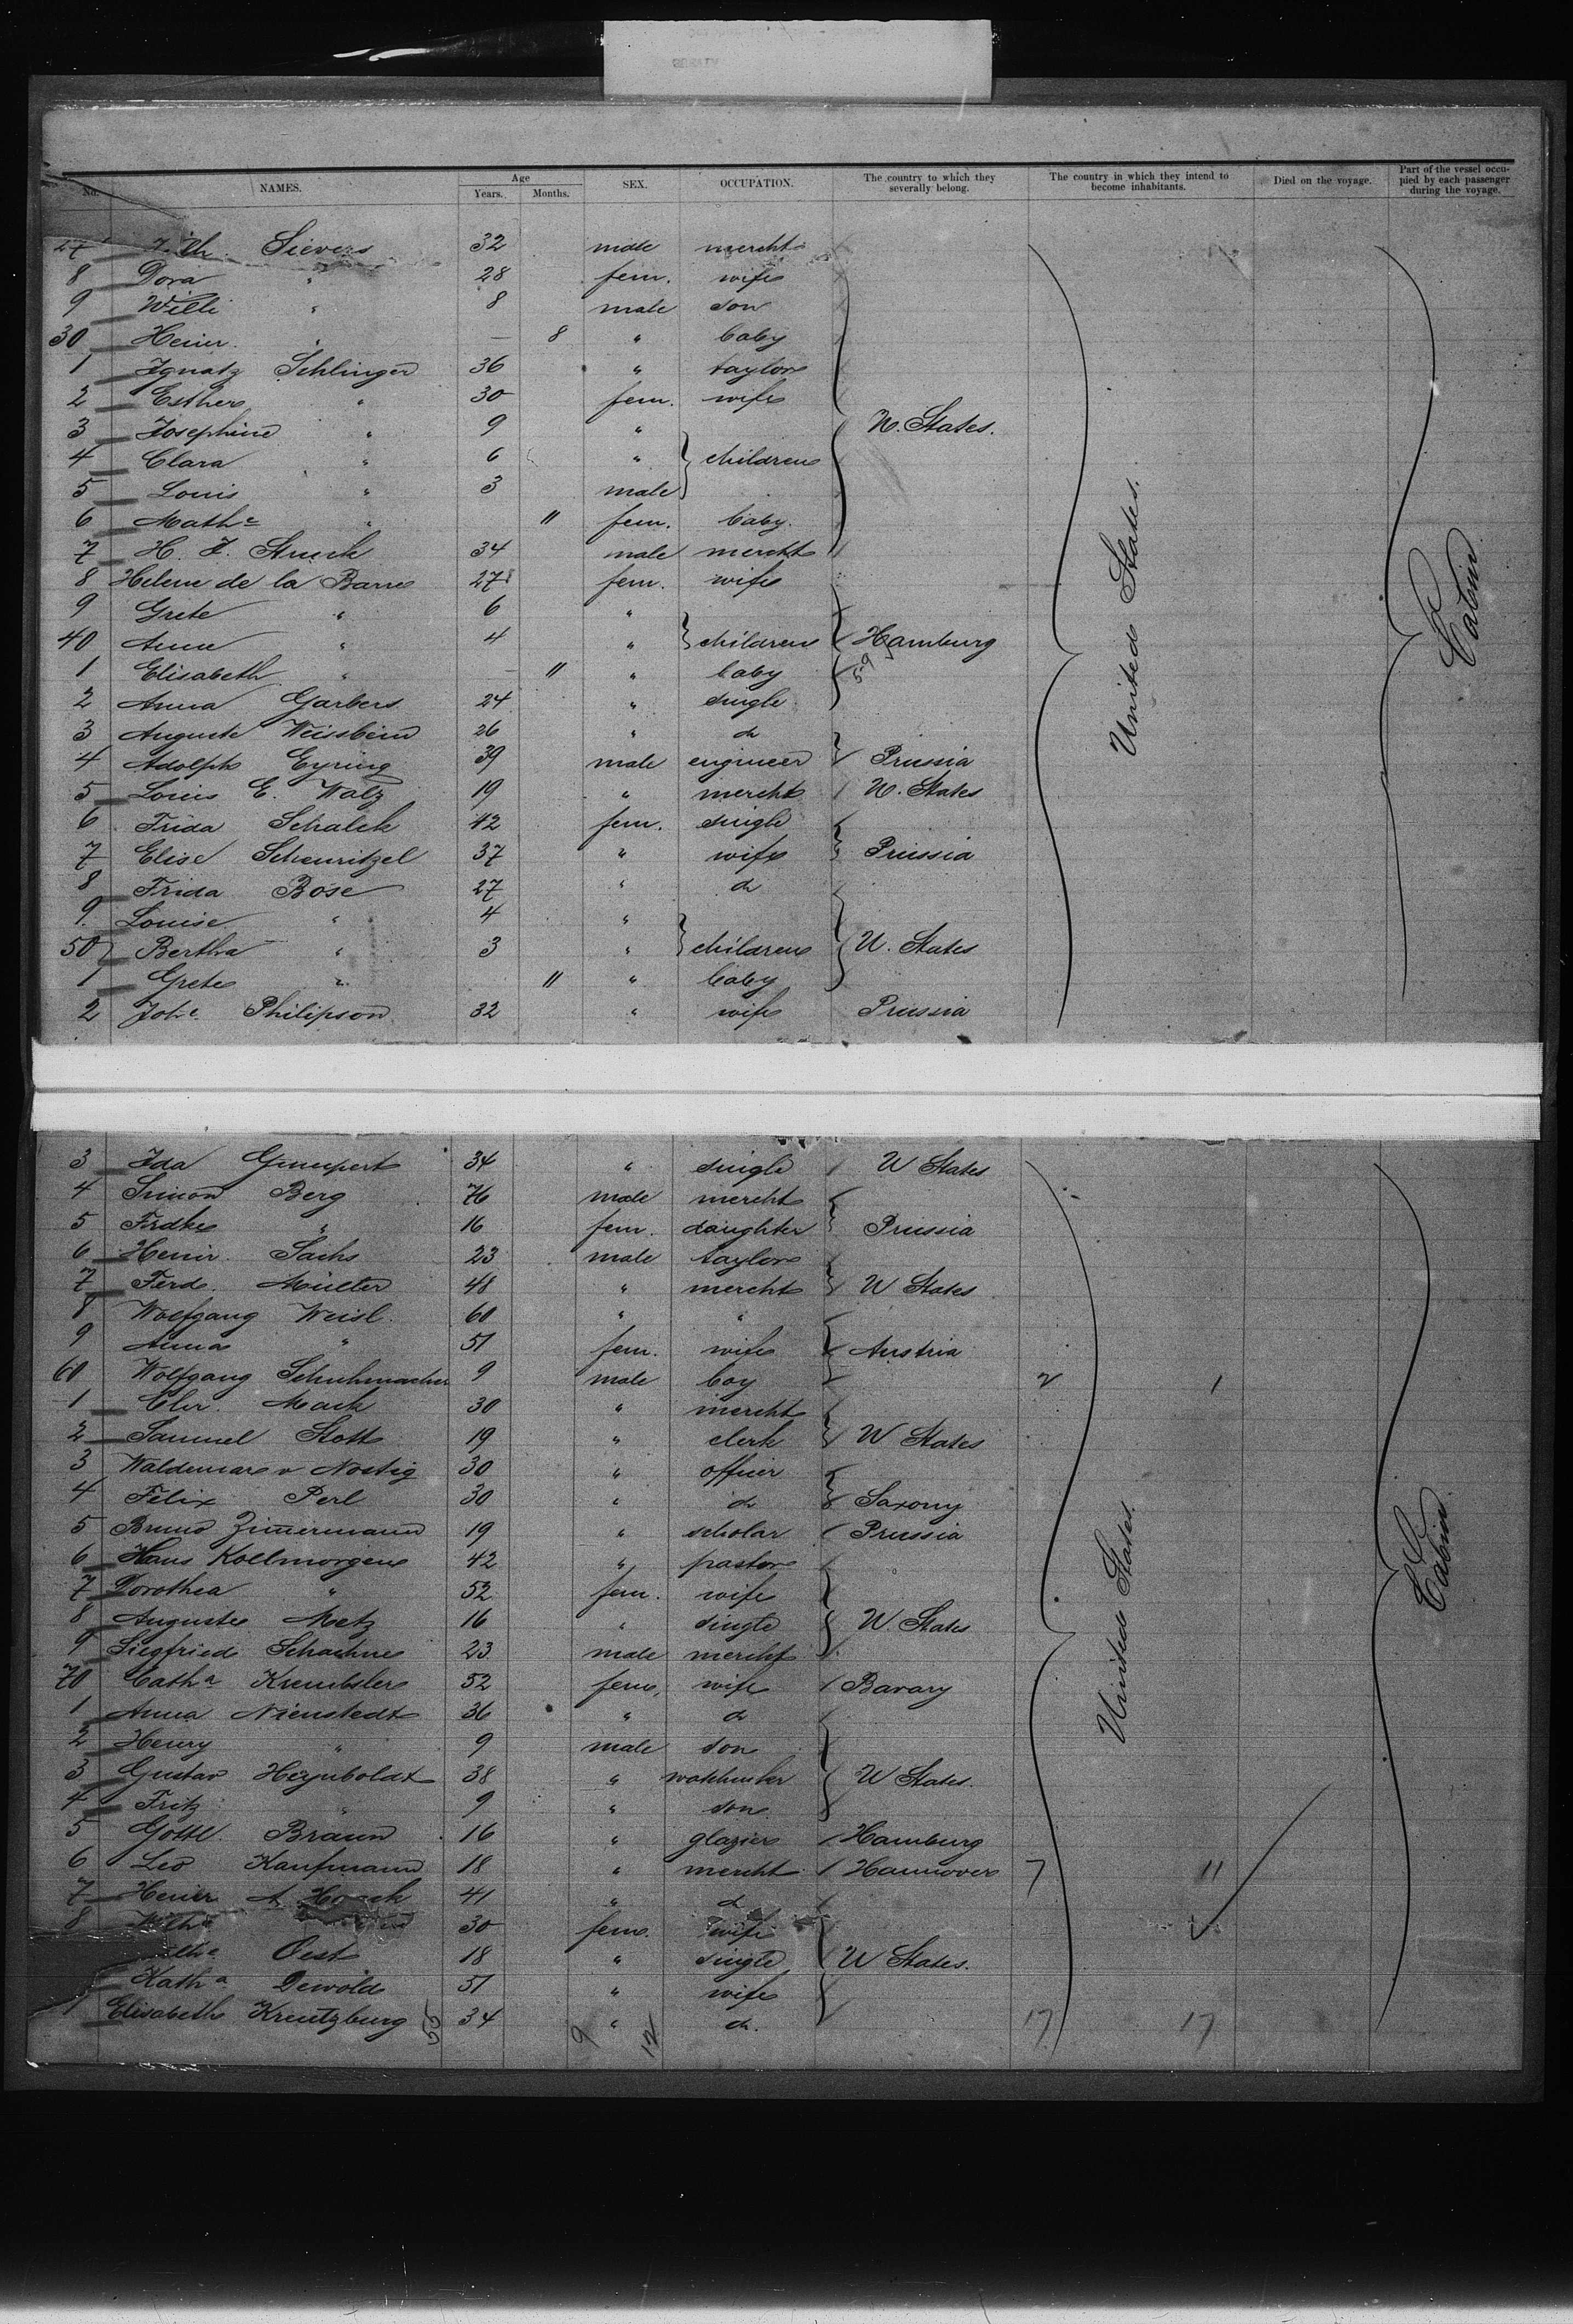 No. NAMES. Age Years. Months. SEX. OCCUPATION. The country to which they severally belong. The country in which they intend to become inhabitants. Died on the voyage. Part of the vessel occupied by each passenger during the voyage.
27 Sievers 32 male mercht
8 Dora " 28 fem. wife
9 Willi " 8 male son
30 Heinr. " — 8 " baby
1 Ignatz Schlinger 36 " taylor
2 Esther " 30 fem. wife
3 Josephine " 9 " U. States.
4 Clara " 6 " children
5 Louis " 3 male
6 Mathe " 11 fem. baby.
7 H. F. Struck 34 male mercht
8 Helene de la Barre 27 fem. wife
9 Grete " 6 "
40 Anna " 4 " children Hamburg
1 Elisabeth " — 11 " baby 59
2 Anna Garbers 24 " single
3 Auguste Weissbein 26 " do
4 Adolph Eyring 39 male engineer Prussia
5 Louis E. Walz 19 " mercht U. States
6 Frida Schalck 42 fem. single
7 Elise Scheuritzel 37 " wife Prussia
8 Frida Bose 27 " do
9 Louise " 4 "
50 Bertha " 3 " children U. States
1 Grete " 11 " baby
2 Johe. Philipson 32 " wife Prussia
United States.
Cabin
3 Ida 34 " single U States
4 Simon Berg 76 male mercht
5 Frdke " 16 fem. daughter Prussia
6 Heinr. Sachs 23 male taylor
7 Ferd. Müller 48 " mercht U States
8 Wolfgang Weisl. 60 " "
9 Anna " 51 fem. wife Austria
60 Wolfgang Schuhmacher 9 male boy 2 1
1 Chr. Mack 30 " mercht
2 Samuel Stott 19 " clerk U States
3 Waldemar v Nostig 30 " officier
4 Felix Perl 30 " do Saxony
5 Bruno Zimermann 19 " scholar Prussia
6 Hans Kollmorgen 42 " pastor
7 Dorothea " 52 fem. wife
8 Auguste Metz 16 " single U States
9 Siegfried Schachne 23 male mercht
70 Catha Krembsler 52 fem. wife Bavary
1 Anna Nienstedt 36 " do
2 Henry " 9 male son
3 Gustav Heynboldt 38 " watchmker U States.
4 Fritz " 9 " son
5 Gottl. Braun 16 " glazier Hamburg
6 Leo Kaufmann 18 " mercht Hannover 7 11
7 Heinr A 41 " do
8 30 fem. wife
Oest 18 " single U States.
Katha Dewold 51 " wife
1 Elisabeth Kreutzburg 55 34 9 " 12 do. 17 17
United States.
Cabin